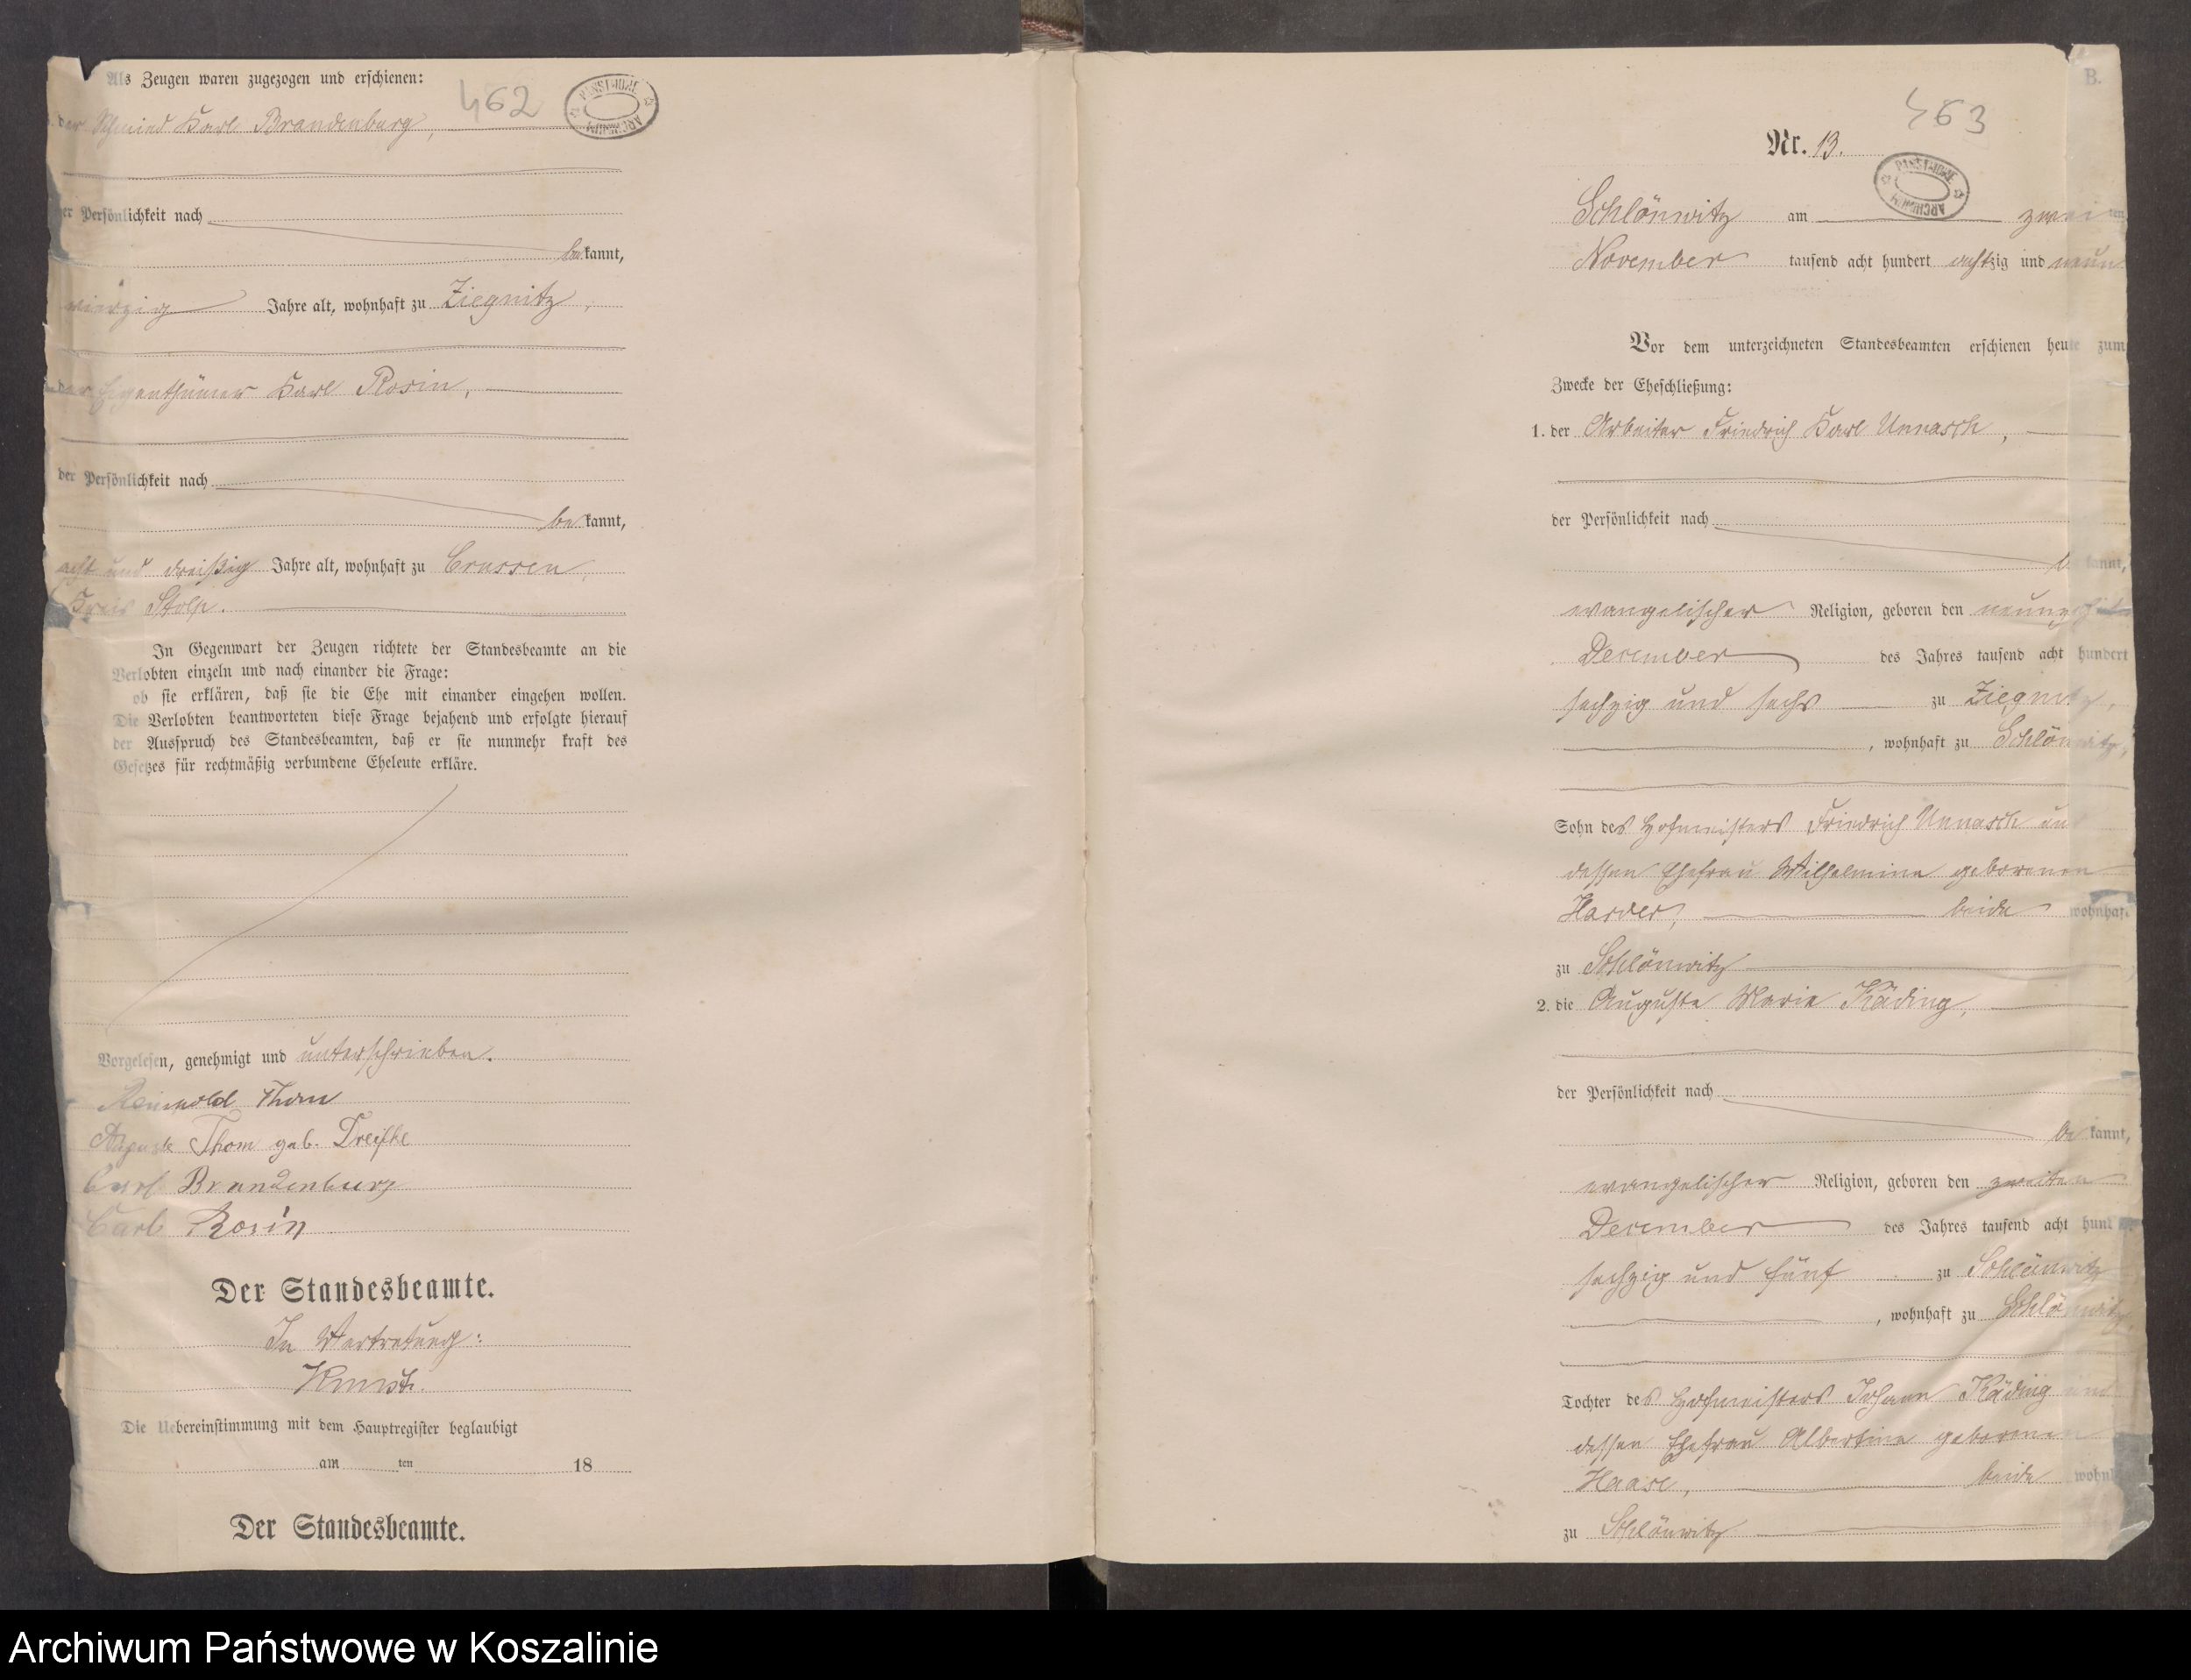 Als Zeugen waren zugezogen und erschienen:
462
PAŃSTWOWE ARCHIWUM
der Schmied Karl Brandenburg,
der Persönlichkeit nach
bekannt,
vierzig Jahre alt, wohnhaft zu Ziegnitz,
der Eigenthümer Karl Rosin,
der Persönlichkeit nach
bekannt,
acht und dreißig Jahre alt, wohnhaft zu Crussen,
Kreis Stolp.
In Gegenwart der Zeugen richtete der Standesbeamte an die
Verlobten einzeln und nach einander die Frage:
ob sie erklären, daß sie die Ehe mit einander eingehen wollen.
Die Verlobten beantworteten diese Frage bejahend und erfolgte hierauf
der Ausspruch des Standesbeamten, daß er sie nunmehr kraft des
Gesetzes für rechtmäßig verbundene Eheleute erkläre.
Vorgelesen, genehmigt und unterschrieben.
Reinhold Thom
Auguste Thom geb. Dreifke
Carl Brandenburg
Carl Rosin
Der Standesbeamte.
In Vertretung:
Die Uebereinstimmung mit dem Hauptregister beglaubigt
am ten 18
Der Standesbeamte.
B.
463
Nr. 13.
Schlönwitz am zweiten
November tausend acht hundert achtzig und neun
Vor dem unterzeichneten Standesbeamten erschienen heute zum
Zwecke der Eheschließung:
1. der Arbeiter Friedrich Karl Unnasch,
der Persönlichkeit nach
bekannt,
evangelischer Religion, geboren den neunzehnten
December des Jahres tausend acht hundert
sechzig und sechs zu Ziegnitz,
, wohnhaft zu Schlönwitz,
Sohn des Hofmeisters Friedrich Unnasch und
dessen Ehefrau Wilhelmine geborenen
Harder, beide wohnhaft
zu Schlönwitz
2. die Auguste Marie Käding,
der Persönlichkeit nach
bekannt,
evangelischer Religion, geboren den zweiten
December des Jahres tausend acht hundert
sechzig und fünf zu Schlönwitz
, wohnhaft zu Schlönwitz,
Tochter des Hofmeisters Johann Käding und
dessen Ehefrau Albertine geborenen
Haase, beide wohnhaft
zu Schlönwitz
Archiwum Państwowe w Koszalinie